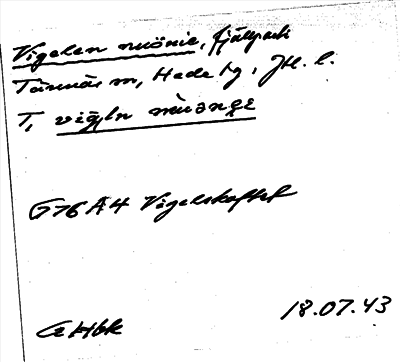 Vigelen nuönie, fjällparti
Tännäs sn, Hede tg, Jtl. l.
T, viǥeln nùɔnǥe
G76 Ä4 Vigelskaftet
GHbk 18.07.43